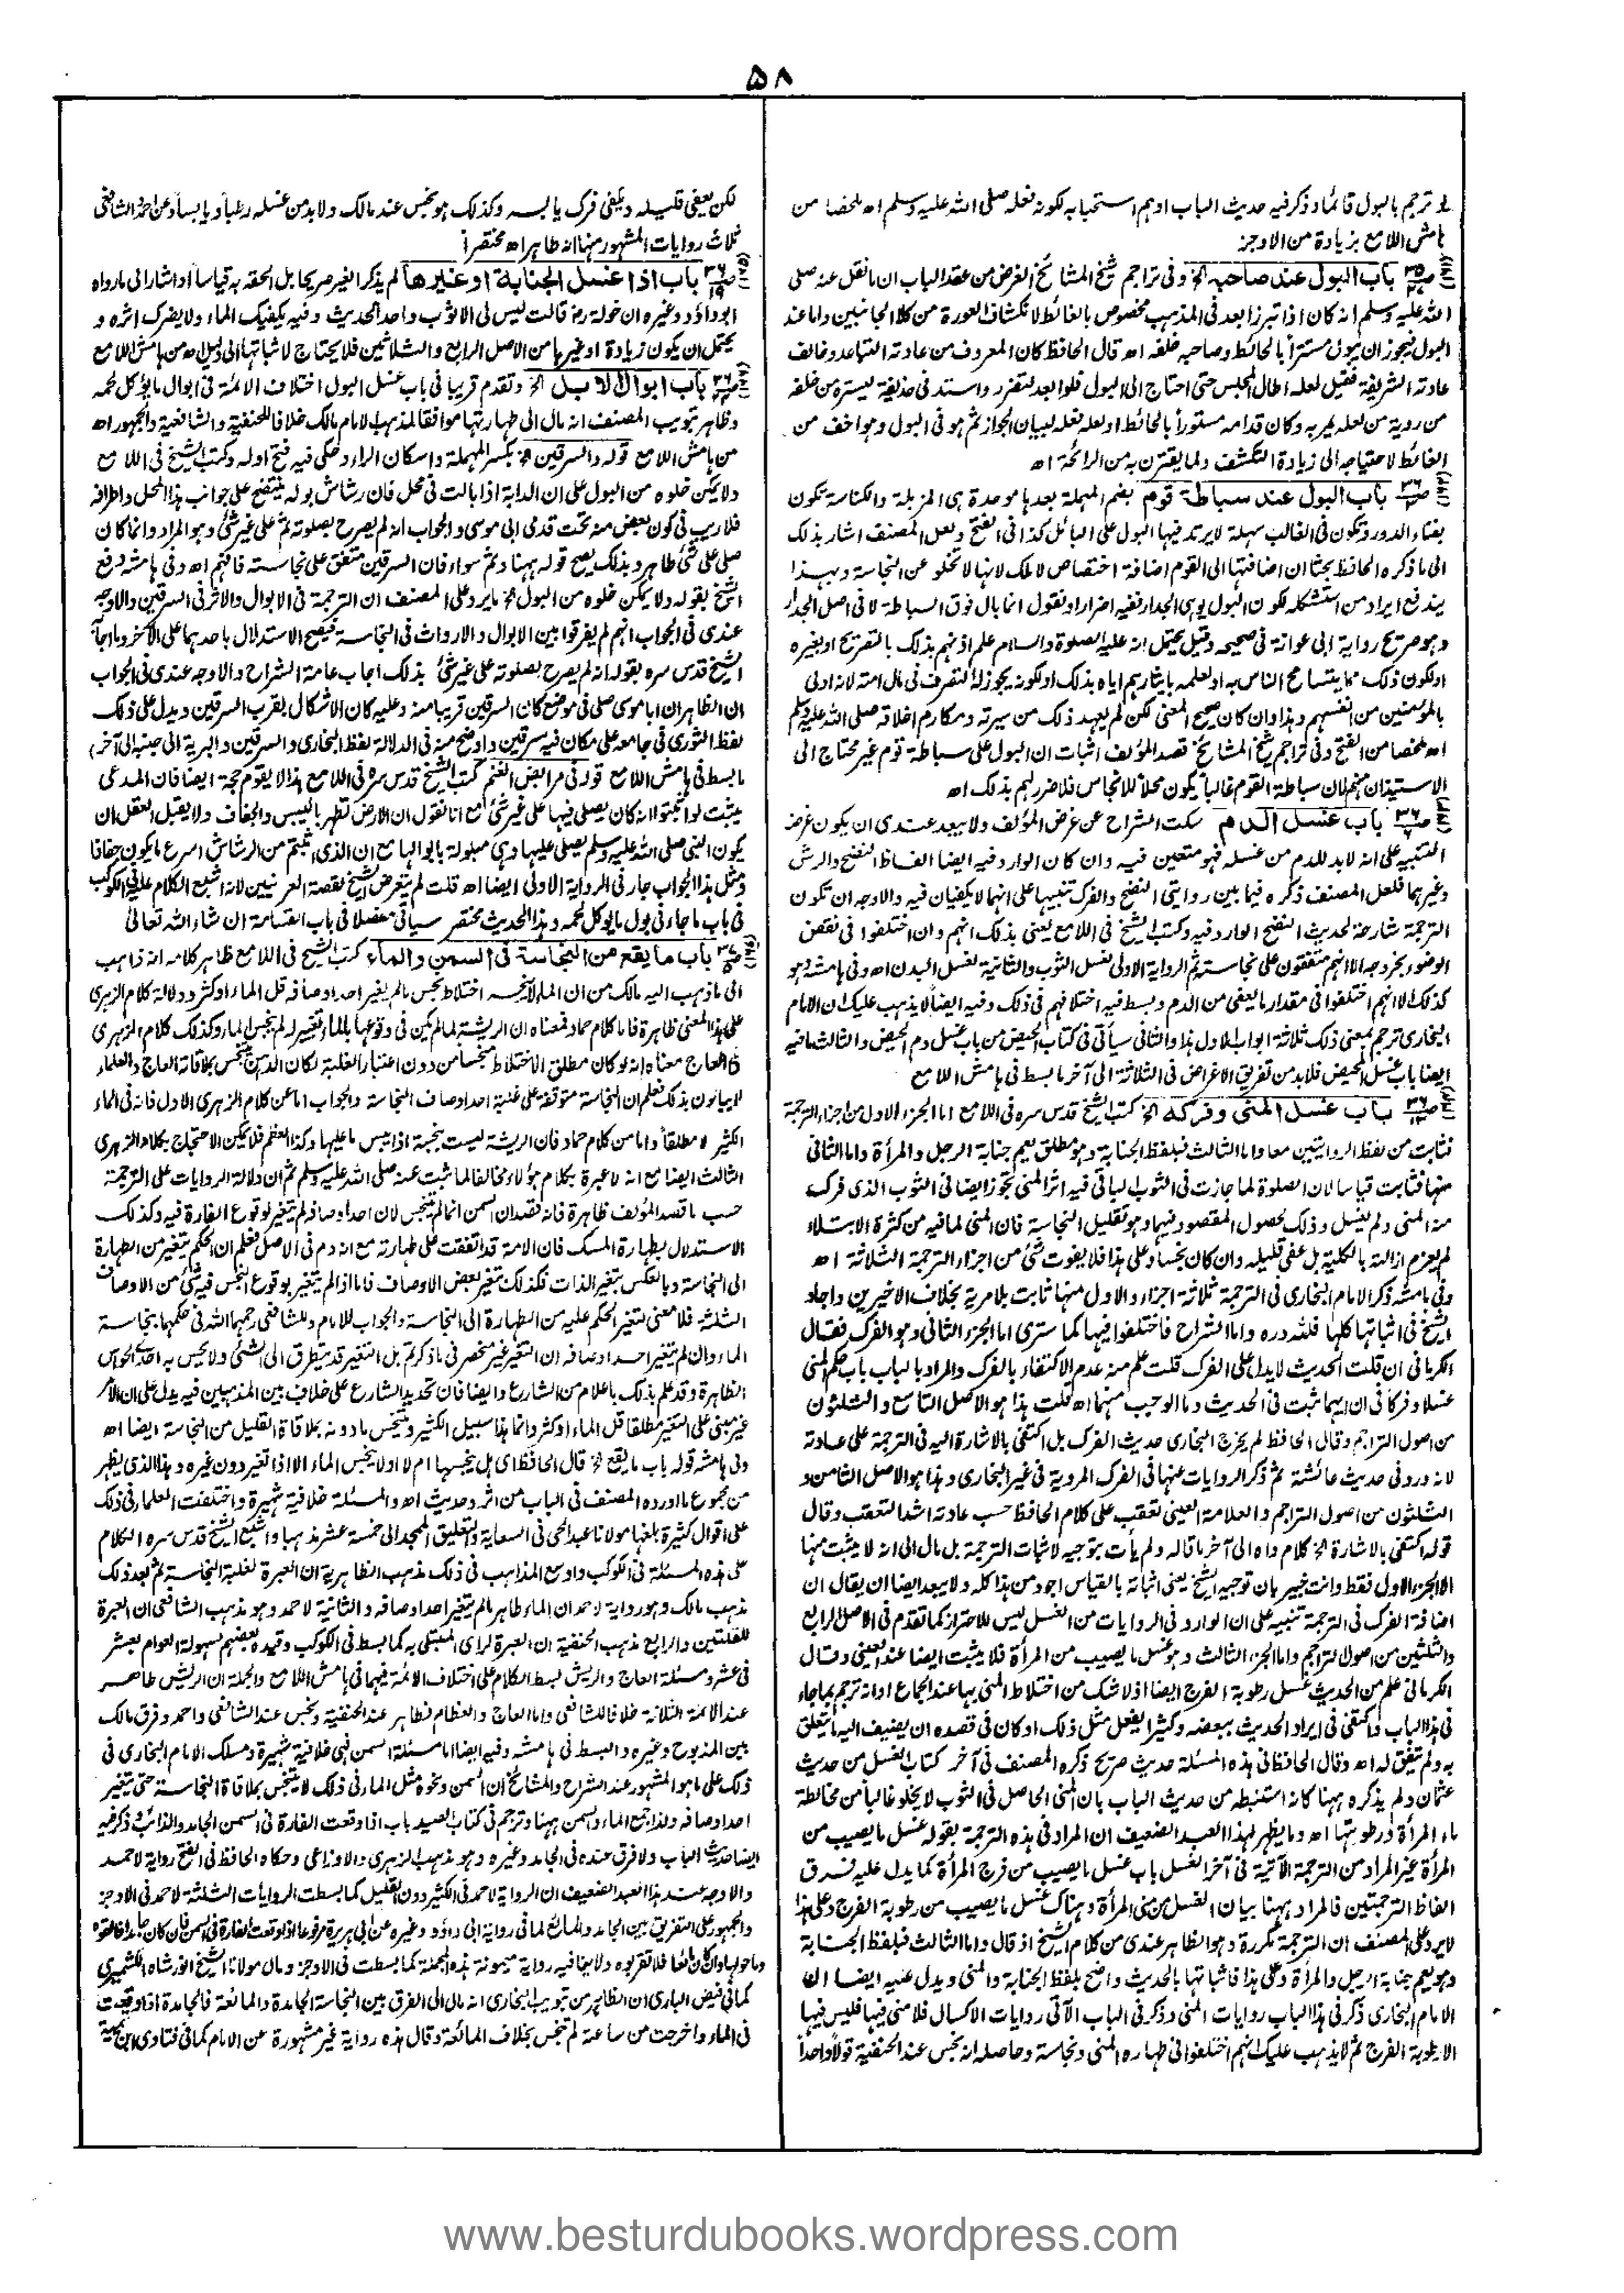 ۵۸
لم يترجم بالبول قائما وذكر فيه حديث الباب اوهم استحبابه لكونه فعله صلى الله عليه وسلم اه ملخصا من
هامش اللامع بزيادة من الاوجز
باب البول عند صاحبه الخ وفى تراجم شيخ المشائخ الغرض من عقد الباب ان ما نقل عنه صلى
الله عليه وسلم انه كان اذا تبرز ابعد فى المذهب مخصوص بالغائط لانكشاف العورة من كلا الجانبين واما عند
البول فيجوز ان يبول مستترا بالحائط وصاحبه خلفه اه قال الحافظ كان المعروف من عادته التباعد وخالف
عادته الشريفة فقيل لعله اطال المجلس حتى احتاج الى البول فلو ابعد لتضرر واستدنى حذيفة ليستره من خلفه
من روية من لعله يمر به وكان قدامه مستورا بالحائط او لعله فعله لبيان الجواز ثم هو فى البول وهو اخف من
الغائط لاحتياجه الى زيادة التكشف ولما يقترن به من الرائحة اه
باب البول عند سباطة قوم بضم المهملة بعدها موحدة هى المزبلة والكناسة تكون
بفناء الدور وتكون فى الغالب سهلة لا يرتد فيها البول على البائل كذا فى الفتح ولعل المصنف اشار بذلك
الى ما ذكره الحافظ بحثا ان اضافتها الى القوم اضافة اختصاص لا ملك لانها لا تخلو عن النجاسة وبهذا
يندفع ايراد من استشكله لكون البول يوهى الجدار ففيه اضرار او نقول انما بال فوق السباطة لا فى اصل الجدار
وهو صريح رواية ابى عوانة فى صحيحه وقيل يحتمل انه عليه الصلوة والسلام علم اذنهم بذلك بالتصريح او بغيره
او لكون ذلك مما يتسامح الناس به او لعلمه بايثارهم اياه بذلك او لكونه يجوز له التصرف فى مال امته لانه اولى
بالمؤمنين من انفسهم وهذا وان كان صحيح المعنى لكن لم يعهد ذلك من سيرته ومكارم اخلاقه صلى الله عليه وسلم
اه ملخصا من الفتح وفى تراجم شيخ المشائخ قصد المؤلف اثبات ان البول على سباطة قوم غير محتاج الى
الاستيذان منهم لان سباطة القوم غالبا يكون محلا للانجاس فلا ضرر لهم بذلك اه
باب غسل الدم سكت الشراح عن غرض المؤلف ولا يبعد عندى ان يكون غرضه
التنبيه على انه لا بد للدم من غسله فهو متعين فيه وان كان الوارد فيه ايضا الفاظ النضح والرش
وغيرهما فلعل المصنف ذكره فيما بين روايتى النضح والفرك تنبيها على انهما لا يكفيان فيه والاوجه ان تكون
الترجمة شارحة لحديث النضح الوارد فيه وكتب الشيخ فى اللامع يعنى بذلك انهم وان اختلفوا فى نقض
الوضوء بخروجه الا انهم متفقون على نجاسته ثم الرواية الاولى لغسل الثوب والثانية لغسل البدن اه وفى هامشه وهو
كذلك الا انهم اختلفوا فى مقدار ما يعفى من الدم وبسط فيه اختلافهم فى ذلك وفيه ايضا لا يذهب عليك ان الامام
البخارى ترجم بمعنى ذلك ثلاثة ابواب الاول هذا والثانى سيأتى فى كتاب الحيض من باب غسل دم الحيض والثالث ما فيه
ايضا باب غسل المحيض فلا بد من تفريق الاغراض فى الثلاثة الى آخر ما بسط فى هامش اللامع
باب غسل المنى وفركه الخ كتب الشيخ قدس سره فى اللامع اما الجزء الاول من اجزاء الترجمة
فثابت من لفظ الروايتين معا واما الثالث فبلفظ الجنابة وهو مطلق يعم جنابة الرجل والمرأة واما الثانى
منها فثابت قياسا لان الصلوة لما جازت فى الثوب الباقى فيه اثر المنى تجوز ايضا فى الثوب الذى فرك
منه المنى ولم يغسل وذلك لحصول المقصود فيهما وهو تقليل النجاسة فان المنى لما فيه من كثرة الابتلاء
لم يعزم ازالته بالكلية بل عفى قليله وان كان نجسا وعلى هذا فلا يفوت شئ من اجزاء الترجمة الثلاثة اه
وفى هامشه ذكر الامام البخارى فى الترجمة ثلاثة اجزاء والاول منها ثابت بلا مرية بخلاف الاخيرين واجاد
الشيخ فى اثباتها كلها فلله دره واما الشراح فاختلفوا فيها كما سترى اما الجزء الثانى وهو الفرك فقال
الكرمانى ان قلت الحديث لا يدل على الفرك قلت علم منه عدم الاكتفاء بالفرك والمراد بالباب باب حكم المنى
غسلا وفركا فى ان ايهما ثبت فى الحديث وما الوجب منهما اه قلت هذا هو الاصل التاسع والثلثون
من اصول التراجم وقال الحافظ لم يخرج البخارى حديث الفرك بل اكتفى بالاشارة اليه فى الترجمة على عادته
لانه ورد فى حديث عائشة ثم ذكر الروايات عنها فى الفرك المروية فى غير البخارى وهذا هو الاصل الثامن و
الثلثون من اصول التراجم والعلامة العينى تعقب على كلام الحافظ حسب عادته اشد التعقب وقال
قوله اكتفى بالاشارة الخ كلام واه الى آخر ما قاله ولم يأت بتوجيه لاثبات الترجمة بل مال الى انه لا يثبت منها
الا الجزء الاول فقط وانت خبير بان توجيه الشيخ يعنى اثباته بالقياس اجود من هذا كله ولا يبعد ايضا ان يقال ان
اضافة الفرك فى الترجمة تنبيه على ان الوارد فى الروايات من الغسل ليس للاحتراز كما تقدم فى الاصل الرابع
والثلثين من اصول التراجم واما الجزء الثالث وهو غسل ما يصيب من المرأة فلا يثبت ايضا عند العينى وقال
الكرمانى علم من الحديث غسل رطوبة الفرج ايضا اذ لا شك من اختلاط المنى بها عند الجماع او انه ترجم بما جاء
فى هذا الباب واكتفى فى ايراد الحديث ببعضه وكثيرا يفعل مثل ذلك او كان فى قصده ان يضيف اليه ما يتعلق
به ولم يتفق له اه وقال الحافظ فى هذه المسئلة حديث صريح ذكره المصنف فى آخر كتاب الغسل من حديث
عثمان ولم يذكره ههنا كانه استنبطه من حديث الباب بان المنى الحاصل فى الثوب لا يخلو غالبا من مخالطة
ماء المرأة ورطوبتها اه وما يظهر لهذا العبد الضعيف ان المراد فى هذه الترجمة بقوله غسل ما يصيب من
المرأة غير المراد من الترجمة الآتية فى آخر الغسل باب غسل ما يصيب من فرج المرأة كما يدل عليه فرق
الفاظ الترجمتين فالمراد ههنا بيان الغسل من منى المرأة وهناك غسل ما يصيب من رطوبة الفرج وعلى هذا
لا يرد على المصنف ان الترجمة مكررة وهو الظاهر عندى من كلام الشيخ اذ قال واما الثالث فبلفظ الجنابة
وهو يعم جنابة الرجل والمرأة وعلى هذا فاثباتها بالحديث واضح بلفظ الجنابة والمنى ويدل عليه ايضا ان
الامام البخارى ذكر فى هذا الباب روايات المنى وذكر فى الباب الآتى روايات الاكسال فلا منى فيها فليس فيها
الا رطوبة الفرج ثم لا يذهب عليك انهم اختلفوا فى طهارة المنى ونجاسته وحاصله انه نجس عند الحنفية قولا واحدا
لكن يعفى قليله ويكفى فرك يابسه وكذلك هو نجس عند مالك ولا بد من غسله رطبا ويابسا وعن احمد والشافعى
ثلاث روايات المشهور منها انه طاهر اه مختصرا
باب اذا غسل الجنابة او غيرها لم يذكر الغير صريحا بل الحقه به قياسا او اشار الى ما رواه
ابو داؤد وغيره ان خولة رض قالت ليس لى الا ثوب واحد الحديث وفيه يكفيك الماء ولا يضرك اثره و
يحتمل ان يكون زيادة او غيرها من الاصل الرابع والثلاثين فلا يحتاج لاثباتها الى دليل اه من هامش اللامع
باب ابوال الابل الخ وتقدم قريبا فى باب غسل البول اختلاف الائمة فى ابوال ما يؤكل لحمه
وظاهر تبويب المصنف انه مال الى طهارتها موافقا لمذهب الامام مالك خلافا للحنفية والشافعية والجمهور اه
من هامش اللامع قوله والسرقين الخ بكسر المهملة واسكان الراء وحكى فيه فتح اوله وكتب الشيخ فى اللامع
ولا يمكن خلوه من البول على ان الدابة اذا بالت فى محل فان رشاش بوله ينتضح على جوانب هذا المحل واطرافه
فلا ريب فى كون بعض منه تحت قدمى ابى موسى والجواب انه لم يصرح بصلوته ثم على غير شئ وهو المراد وانما كان
صلى على شئ طاهر وبذلك يصح قوله ههنا وثم سواء فان السرقين متفق على نجاسته فافهم اه وفى هامشه دفع
الشيخ بقوله ولا يمكن خلوه من البول الخ ما يرد على المصنف ان الترجمة فى الابوال والاثر فى السرقين والاوجه
عندى فى الجواب انهم لم يفرقوا بين الابوال والارواث فى النجاسة فيصح الاستدلال باحدهما على الآخر وما اجاب
الشيخ قدس سره بقوله انه لم يصرح بصلوته على غير شئ بذلك اجاب عامة الشراح والاوجه عندى فى الجواب
ان الظاهر ان ابا موسى صلى فى موضع كان السرقين قريبا منه وعليه كان الاشكال بقرب السرقين ويدل على ذلك
لفظ الثورى فى جامعه على مكان فيه سرقين واوضح منه فى الدلالة لفظ البخارى والسرقين والبرية الى جنبه الى آخر
ما بسط فى هامش اللامع قوله فى مرابض الغنم كتب الشيخ قدس سره فى اللامع هذا لا يقوم حجة ايضا فان المدعى
يثبت لو اثبتوا انه كان يصلى فيها على غير شئ مع انا نقول ان الارض تطهر باليبس والجفاف ولا يقبل العقل ان
يكون النبى صلى الله عليه وسلم يصلى عليها وهى مبلولة بابوالها مع ان الذى يتهم من الرشاش اسرع ما يكون جفافا
ومثل هذا الجواب جار فى الرواية الاولى ايضا اه قلت لم يتعرض الشيخ لقصة العرنيين لانه اشبع الكلام عليه فى الكوكب
فى باب ما جاء فى بول ما يؤكل لحمه وهذا الحديث مختصر سيأتى مفصلا فى باب القسامة ان شاء الله تعالى
باب ما يقع من النجاسة فى السمن والماء كتب الشيخ فى اللامع ظاهر كلامه انه ذاهب
الى ما ذهب اليه مالك من ان الماء لا ينجسه اختلاط نجس ما لم يغير احد اوصافه قل الماء او كثر ودلالة كلام الزهرى
على هذا المعنى ظاهرة فاما كلام حماد فمعناه ان الريشة لما لم يكن فى وقوعها بالماء تغيير له لم ينجس الماء وكذلك كلام الزهرى
فى العاج معناه انه لو كان مطلق الاختلاط منجسا من دون اعتبار الغلبة لكان الدهن يتنجس بملاقاة العاج والعلماء
لا يبالون بذلك فعلم ان النجاسة متوقفة على غلبة احد اوصاف النجاسة والجواب اما عن كلام الزهرى الاول فانه فى الماء
الكثير لا مطلقا واما من كلام حماد فان الريشة ليست بنجسة اذا يبس ما عليها وكذا العظم فلا يمكن الاحتجاج بكلام الزهرى
الثالث ايضا مع انه لا عبرة بكلام هؤلاء مخالفا لما ثبت عنه صلى الله عليه وسلم ثم ان دلالة الروايات على الترجمة
حسب ما قصد المؤلف ظاهرة فانه قصد ان السمن انما لم يتنجس لان احد اوصافه لم يتغير لوقوع الفارة فيه وكذلك
الاستدلال بطهارة المسك فان الامة قد اتفقت على طهارته مع انه دم فى الاصل فعلم ان الحكم يتغير من الطهارة
الى النجاسة وبالعكس بتغير الذات فكذلك تغير بعض الاوصاف فاما اذا لم يتغير بوقوع النجس فيه شئ من الاوصاف
الثلثة فلا معنى لتغير الحكم عليه من الطهارة الى النجاسة والجواب للامام وللشافعى رحمهما الله فى حكمهما بنجاسة
الماء وان لم يتغير احد اوصافه ان التغير غير منحصر فى ما ذكرتم بل التغير قد يتطرق الى الشئ ولا يحس به احد الحواس
الظاهرة وقد علم بذلك باعلام من الشارع وايضا فان تحديد الشارع على خلاف بين المذهبين فيه يدل على ان الامر
غير مبنى على التغير مطلقا قل الماء او كثر وانما هذا سبيل الكثير ويتنجس ما دونه بملاقاة القليل من النجاسة ايضا اه
وفى هامشه قوله باب ما يقع الخ قال الحافظ اى هل ينجسها ام لا او لا ينجس الماء الا اذا تغير دون غيره وهذا الذى يظهر
من مجموع ما اورده المصنف فى الباب من اثر وحديث اه والمسئلة خلافية شهيرة واختلفت العلماء فى ذلك
على اقوال كثيرة بلغها مولانا عبد الحى فى السعاية والتعليق الممجد الى خمسة عشر مذهبا واشبع الشيخ قدس سره الكلام
على هذه المسئلة فى الكوكب واوسع المذاهب فى ذلك مذهب الظاهرية ان العبرة لغلبة النجاسة ثم بعد ذلك
مذهب مالك وهو رواية لاحمد ان الماء طاهر ما لم يتغير احد اوصافه والثانية لاحمد وهو مذهب الشافعى ان العبرة
للقلتين والرابع مذهب الحنفية ان العبرة لراى المبتلى به كما بسط فى الكوكب وقيده بعضهم لسهولة العوام بعشر
فى عشر ومسئلة العاج والريش بسط الكلام على اختلاف الائمة فيهما فى هامش اللامع والجملة ان الريش طاهر
عند الائمة الثلاثة خلافا للشافعى واما العاج والعظام فطاهر عند الحنفية ونجس عند الشافعى واحمد وفرق مالك
بين المذبوح وغيره والبسط فى هامشه وفيه ايضا اما مسئلة السمن فهى خلافية شهيرة ومسلك الامام البخارى فى
ذلك على ما هو المشهور عند الشراح والمشائخ ان السمن ونحوه مثل الماء فى ذلك لا يتنجس بملاقاة النجاسة حتى تغير
احد اوصافه ولذا جمع الماء والسمن ههنا وترجم فى كتاب الصيد باب اذا وقعت الفارة فى السمن الجامد والذائب وذكر فيه
ايضا حديث الباب ولا فرق عنده فى الجامد وغيره وهو مذهب الزهرى والاوزاعى وحكاه الحافظ فى الفتح رواية لاحمد
والاوجه عند هذا العبد الضعيف ان الرواية لاحمد فى الكثير دون القليل كما بسطت الروايات الثلثة لاحمد فى الاوجز
والجمهور على التفريق بين الجامد والمائع لما فى رواية ابى داؤد وغيره عن ابى هريرة مرفوعا اذا وقعت الفارة فى السمن فان كان جامدا فالقوه
وما حولها وان كان مائعا فلا تقربوه ولا يخالفه رواية ميمونة هذه المجملة كما بسطت فى الاوجز ومال مولانا الشيخ انور شاه الكشميرى
كما فى فيض البارى ان الظاهر من تبويب البخارى انه مال الى الفرق بين النجاسة الجامدة والمائعة فالجامدة اذا وقعت
فى الماء واخرجت من ساعته لم تنجس بخلاف المائعة وقال هذه رواية غير مشهورة عن الامام كما فى فتاوى ابن تيمية
www.besturdubooks.wordpress.com